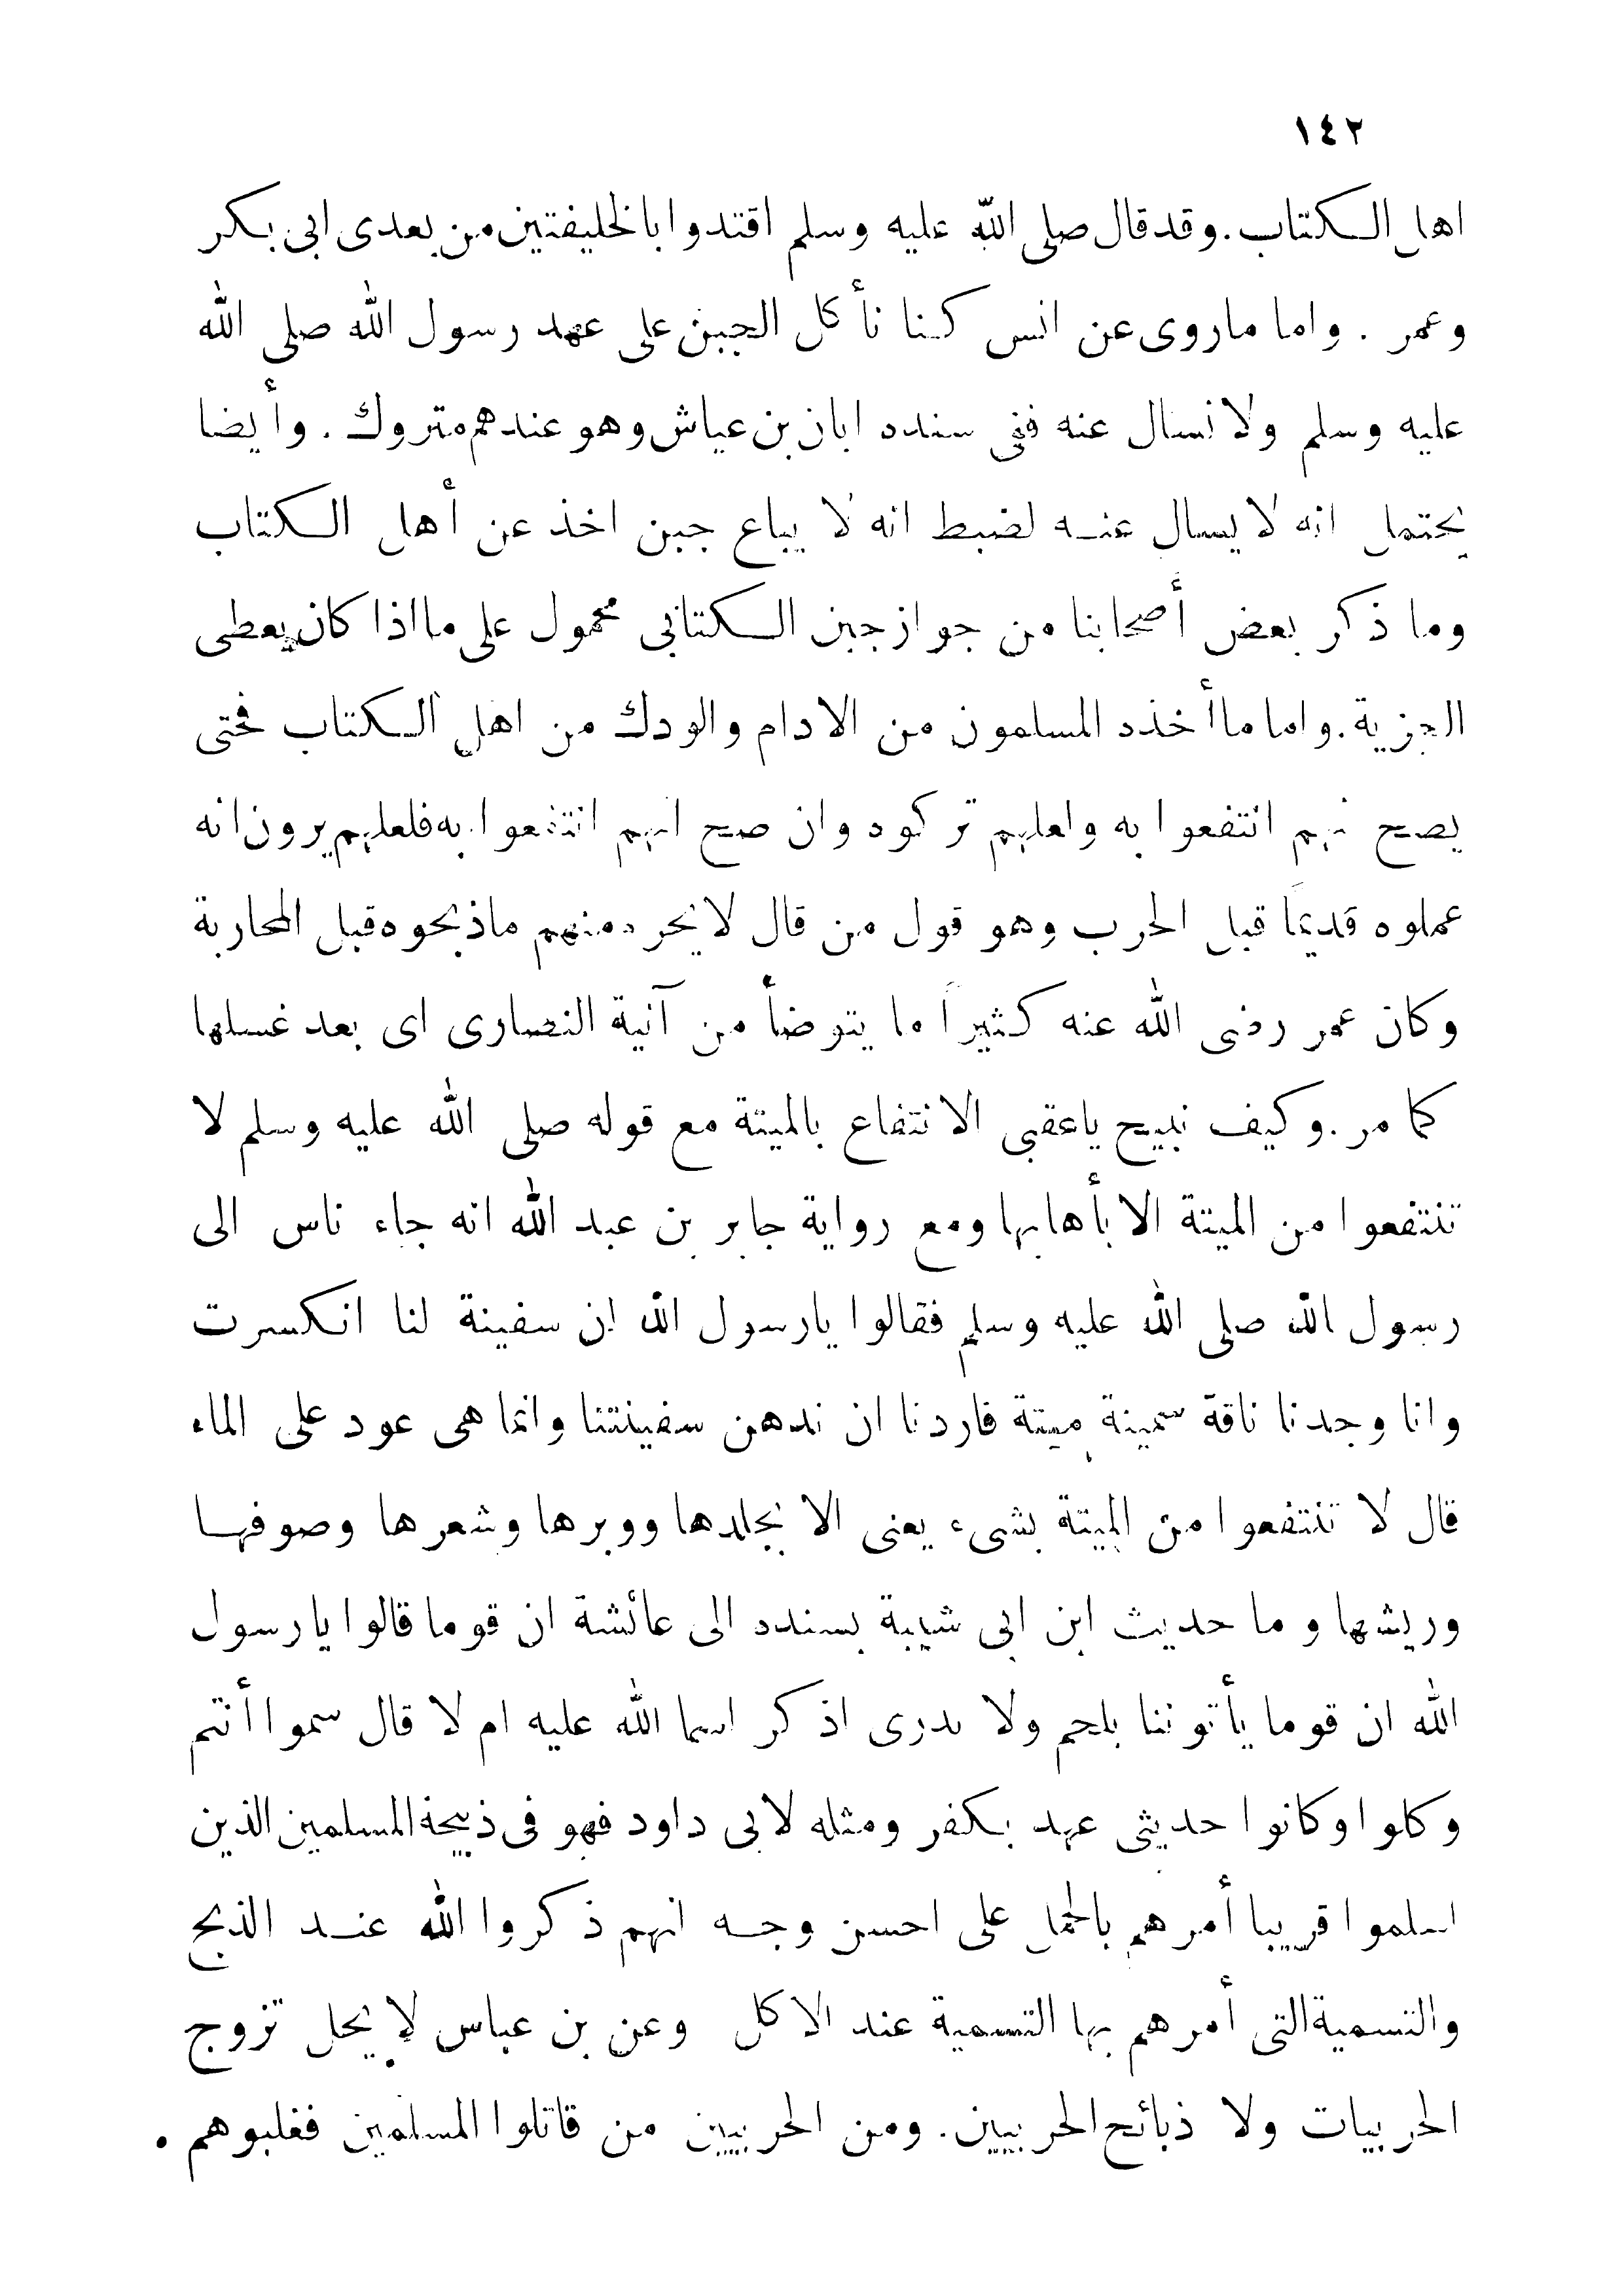 ١٤٢
اهل الكتاب. وقد قال صلى الله عليه وسلم اقتدوا بالخليفتين من بعدى ابى بكر
وعمر . واما ماروى عن انس كنا نأكل الجبن على عهد رسول الله صلى الله
عليه وسلم ولا نسال عنه ففى سنده ابان بن عياش وهو عندهم متروك . وأيضا
يحتمل انه لا يسال عنه لضبط انه لا يباع جبن اخذ عن أهل الكتاب
وما ذكر بعض أصحابنا من جواز جبن الكتابى محمول على ما اذا كان يعطى
الجزية. واما ما أخذه المسلمون من الادام والودك من اهل الكتاب فحتى
يصح انهم انتفعوا به ولعلهم تركوه وان صح انهم انتفعوا به فلعلهم يرون انه
عملوه قديما قبل الحرب وهو قول من قال لا يحرم منهم ماذبحوه قبل المحاربة
وكان عمر رضى الله عنه كثيراً ما يتوضأ من آنية النصارى اى بعد غسلها
كما مر. وكيف نبيح ياعقبى الانتفاع بالميتة مع قوله صلى الله عليه وسلم لا
تنتفعوا من الميتة الا بأهابها ومع رواية جابر بن عبد الله انه جاء ناس الى
رسول الله صلى الله عليه وسلم فقالوا يارسول الله ان سفينة لنا انكسرت
وانا وجدنا ناقة سمينة ميتة فاردنا ان ندهن سفينتنا وانما هى عود على الماء
قال لا تنتفعوا من الميتة بشىء يعنى الا بجلدها ووبرها وشعرها وصوفها
وريشها و ما حديث ابن ابى شيبة بسنده الى عائشة ان قوما قالوا يارسول
الله ان قوما يأتوننا بلحم ولا ندرى اذكر اسما الله عليه ام لا قال سموا أنتم
وكلوا وكانوا حديثى عهد بكفر ومثله لابى داود فهو فى ذبيحة المسلمين الذين
اسلموا قريبا أمرهم بالحمل على احسن وجه انهم ذكروا الله عند الذبح
والتسمية التى أمرهم بها التسمية عند الاكل وعن بن عباس لا يحل تزوج
الحربيات ولا ذبائح الحربيين. ومن الحربيين من قاتلوا المسلمين فغلبوهم .